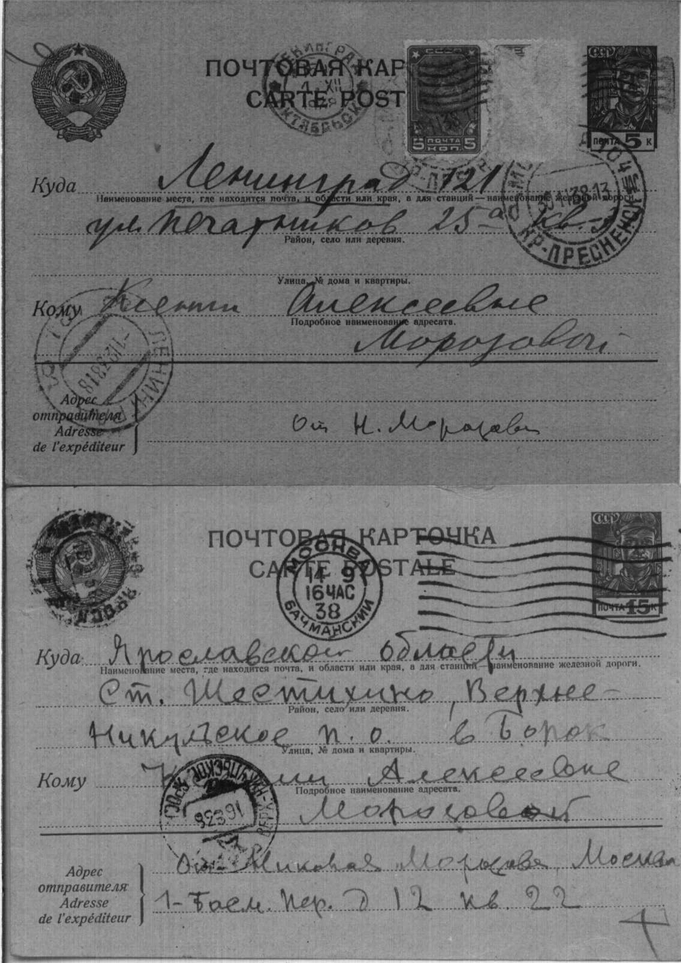 ПОЧТОВАЯ КАР
CARTE POST
ЛЕНИНГРАД
XII
ОКТЯБРЬСК
5 ПОЧТА 5
КОП.
СССР
ПОЧТА 5 К
КР-ПРЕСНЕНСК
Куда Ленинград 121
Наименование места, где находится почта, и области или края, а для станций—наименование железной дороги.
ул. Печатников 25а кв. 
Район, село или деревня.
Улица, № дома и квартиры.
Кому Ксении Алексеевне
Подробное наименование адресата.
Морозовой
ЛЕНИНГ
Адрес
отправителя
Adresse
de l'expéditeur
От Н. Морозова
ПОЧТОВАЯ КАРТОЧКА
CARTE POSTALE
МОСКВА
14 9
16ЧАС
38
БАУМАНСКИЙ
СССР
ПОЧТА 15 К
Куда Ярославской области
Наименование места, где находится почта, и области или края, а для станций, наименование железной дороги.
Ст. Шестихино, Верхне-
Район, село или деревня.
Никульское п. о. в Борок
Улица, № дома и квартиры.
Кому Ксении Алексеевне
Подробное наименование адресата.
Морозовой
Адрес
отправителя
Adresse
de l'expéditeur
От Николая Морозова, Москва
1-Басм. пер. д 12 кв. 22